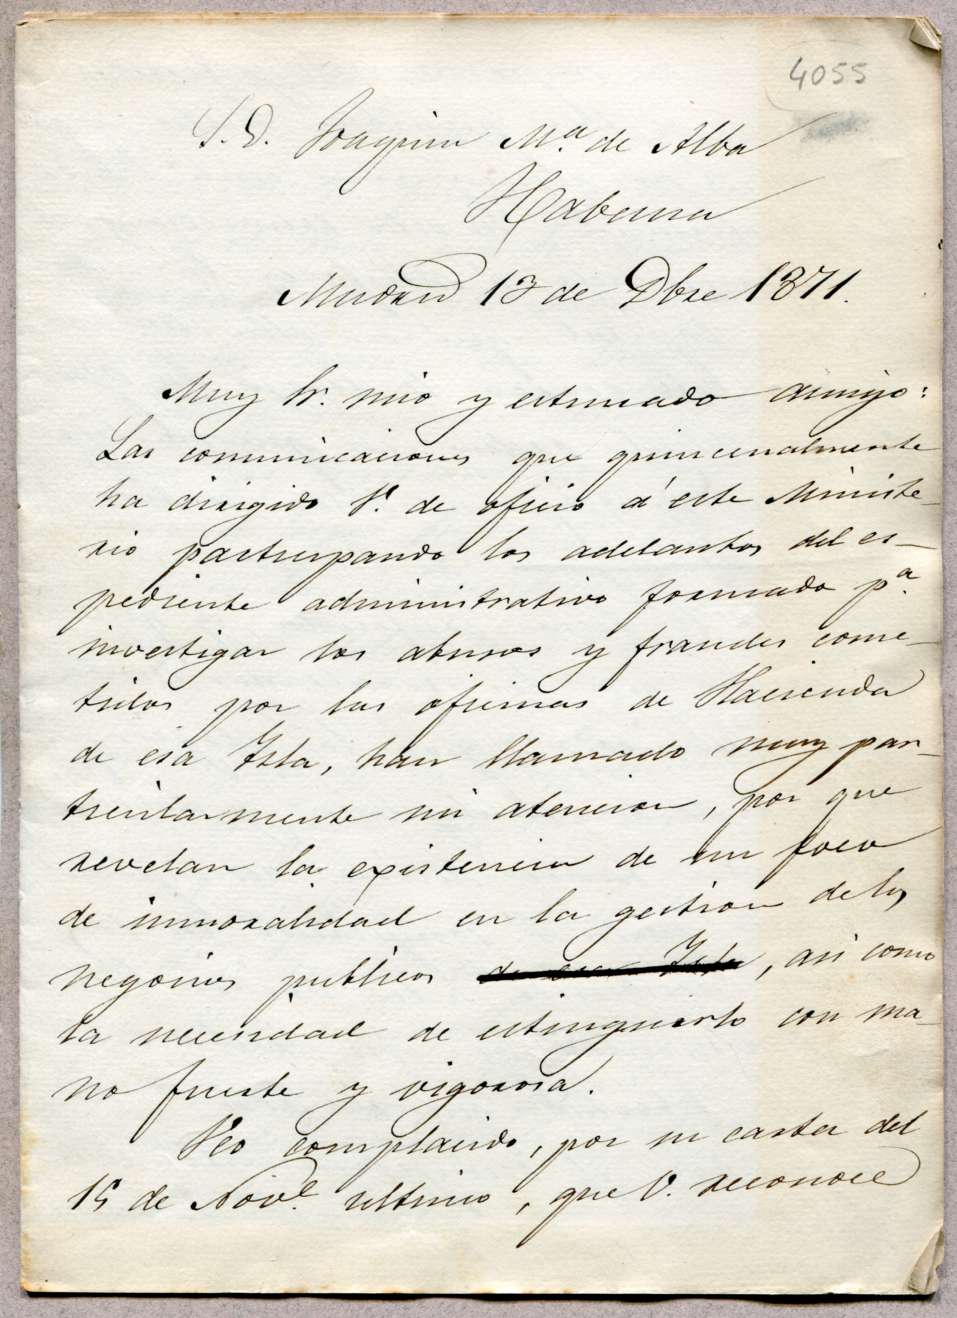 4055
S. D. Joaquin Mª de Alba
Habana
Madrid 13 de Dbre 1871.
Muy Sr. mio y estimado amigo:
Las comunicaciones que quincenalmente
ha dirigido V. de oficio á este Ministe-
rio participando los adelantos del es-
pediente administrativo formado pª.
investigar los abusos y fraudes come-
tidos por las oficinas de Hacienda
de esa Isla, han llamado muy par-
ticularmente mi atencion, por que
revelan la existencia de un foco
de inmoralidad en la gestion de los
negocios publicos de esa Isla, asi como
la necesidad de estinguirlo con ma-
no fuerte y vigorosa.
Veo complacido, por su carta del
15 de Nove. ultimo, que V. reconoce